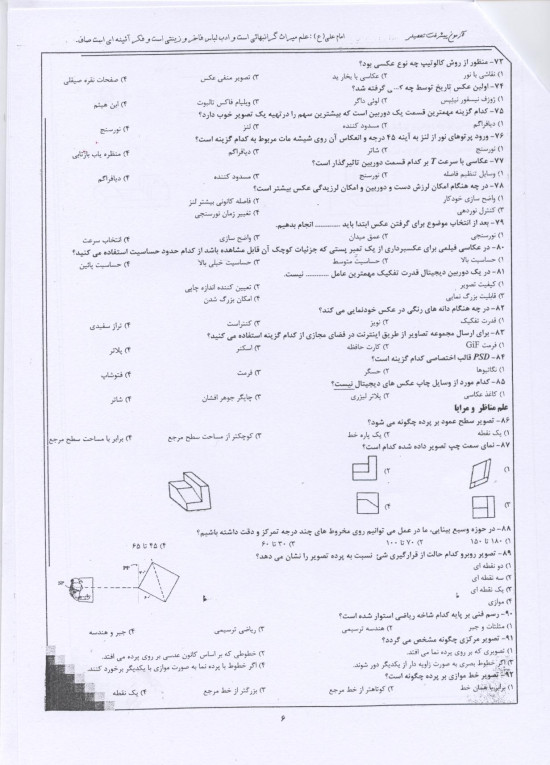 آزمون پیشرفت تحصیلی امام علی (ع) : علم میراث گرانبهائی است و ادب لباس فاخر و زینتی است و فکر آئینه ای است صاف.
۷۳- منظور از روش کالوتیپ چه نوع عکسی بود؟
۱) نقاشی با نور ۲) عکاسی با بخار ید ۳) تصویر منفی عکس ۴) صفحات نقره صیقلی
۷۴- اولین عکس تاریخ توسط چه ک... ی گرفته شد؟
۱) ژوزف نیسفور نیپس ۲) لوئی داگر ۳) ویلیام فاکس تالبوت ۴) ابن هیثم
۷۵- کدام گزینه مهمترین قسمت یک دوربین است که بیشترین سهم را در تهیه یک تصویر خوب دارد؟
۱) دیافراگم ۲) مسدود کننده ۳) لنز ۴) نورسنج
۷۶- ورود پرتوهای نور از لنز به آینه ۴۵ درجه و انعکاس آن روی شیشه مات مربوط به کدام گزینه است؟
۱) نورسنج ۲) شاتر ۳) دیافراگم ۴) منظره یاب بازتابی
۷۷- عکاسی با سرعت T بر کدام قسمت دوربین تاثیرگذار است؟
۱) وسایل تنظیم فاصله ۲) نورسنج ۳) مسدود کننده ۴) دیافراگم
۷۸- در چه هنگام امکان لرزش دست و دوربین و امکان لرزیدگی عکس بیشتر است؟
۱) واضح سازی خودکار ۲) فاصله کانونی بیشتر لنز
۳) کنترل نوردهی ۴) تغییر زمان نورسنجی
۷۹- بعد از انتخاب موضوع برای گرفتن عکس ابتدا باید ............ انجام بدهیم.
۱) نورسنجی ۲) عمق میدان ۳) واضح سازی ۴) انتخاب سرعت
۸۰- در عکاسی فیلمی برای عکسبرداری از یک تمبر پستی که جزئیات کوچک آن قابل مشاهده باشد از کدام حدود حساسیت استفاده می کنید؟
۱) حساسیت بالا ۲) حساسیت متوسط ۳) حساسیت خیلی بالا ۴) حساسیت پائین
۸۱- در یک دوربین دیجیتال قدرت تفکیک مهمترین عامل ........... نیست.
۱) کیفیت تصویر ۲) تعیین کننده اندازه چاپی
۳) قابلیت بزرگ نمایی ۴) امکان بزرگ شدن
۸۲- در چه هنگام دانه های رنگی در عکس خودنمایی می کند؟
۱) قدرت تفکیک ۲) نویز ۳) کنتراست ۴) تراز سفیدی
۸۳- برای ارسال مجموعه تصاویر از طریق اینترنت در فضای مجازی از کدام گزینه استفاده می کنید؟
۱) فرمت GiF ۲) کارت حافظه ۳) اسکنر ۴) پلاتر
۸۴- PSD قالب اختصاصی کدام گزینه است؟
۱) نگاتیوها ۲) حسگر ۳) فرمت ۴) فتوشاپ
۸۵- کدام مورد از وسایل چاپ عکس های دیجیتال نیست؟
۱) کاغذ عکاسی ۲) پلاتر لیزری ۳) چاپگر جوهر افشان ۴) شاتر
علم مناظر و مرایا
۸۶- تصویر سطح عمود بر پرده چگونه می شود؟
۱) یک نقطه ۲) یک پاره خط ۳) کوچکتر از مساحت سطح مرجع ۴) برابر با مساحت سطح مرجع
۸۷- نمای سمت چپ تصویر داده شده کدام است؟
۱) ۲)
۳) ۴)
۸۸- در حوزه وسیع بینایی، ما در عمل می توانیم روی مخروط های چند درجه تمرکز و دقت داشته باشیم؟
۱) ۱۸۰ تا ۱۵۰ ۲) ۷۰ تا ۱۰۰ ۳) ۳۰ تا ۶۰ ۴) ۴۵ تا ۶۵
۸۹- تصویر روبرو کدام حالت از قرارگیری شئ نسبت به پرده تصویر را نشان می دهد؟
۱) دو نقطه ای
۲) سه نقطه ای
۳) یک نقطه ای
۴) موازی
PP
SP
۹۰- رسم فنی بر پایه کدام شاخه ریاضی استوار شده است؟
۱) مثلثات و جبر ۲) هندسه ترسیمی ۳) ریاضی ترسیمی ۴) جبر و هندسه
۹۱- تصویر مرکزی چگونه مشخص می گردد؟
۱) تصویری که بر روی پرده نما می افتد. ۲) خطوطی که بر اساس کانون عدسی بر روی پرده می افتد.
۳) اگر خطوط بصری به صورت زاویه دار از یکدیگر دور شوند. ۴) اگر خطوط با پرده نما به صورت موازی با یکدیگر برخورد کنند.
۹۲- تصویر خط موازی بر پرده چگونه است؟
۱) برابر با همان خط ۲) کوتاهتر از خط مرجع ۳) بزرگتر از خط مرجع ۴) یک نقطه
۶